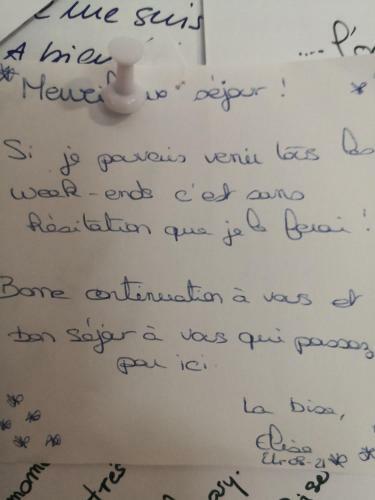 me suis
A bien
....l'
séjour !
Si je pouvais venir tous les
week-ends c'est sans
hésitation que je le ferai !
Bonne continuation à vous et
bon séjour à vous qui passez
par ici.
La bise,
Elise
très